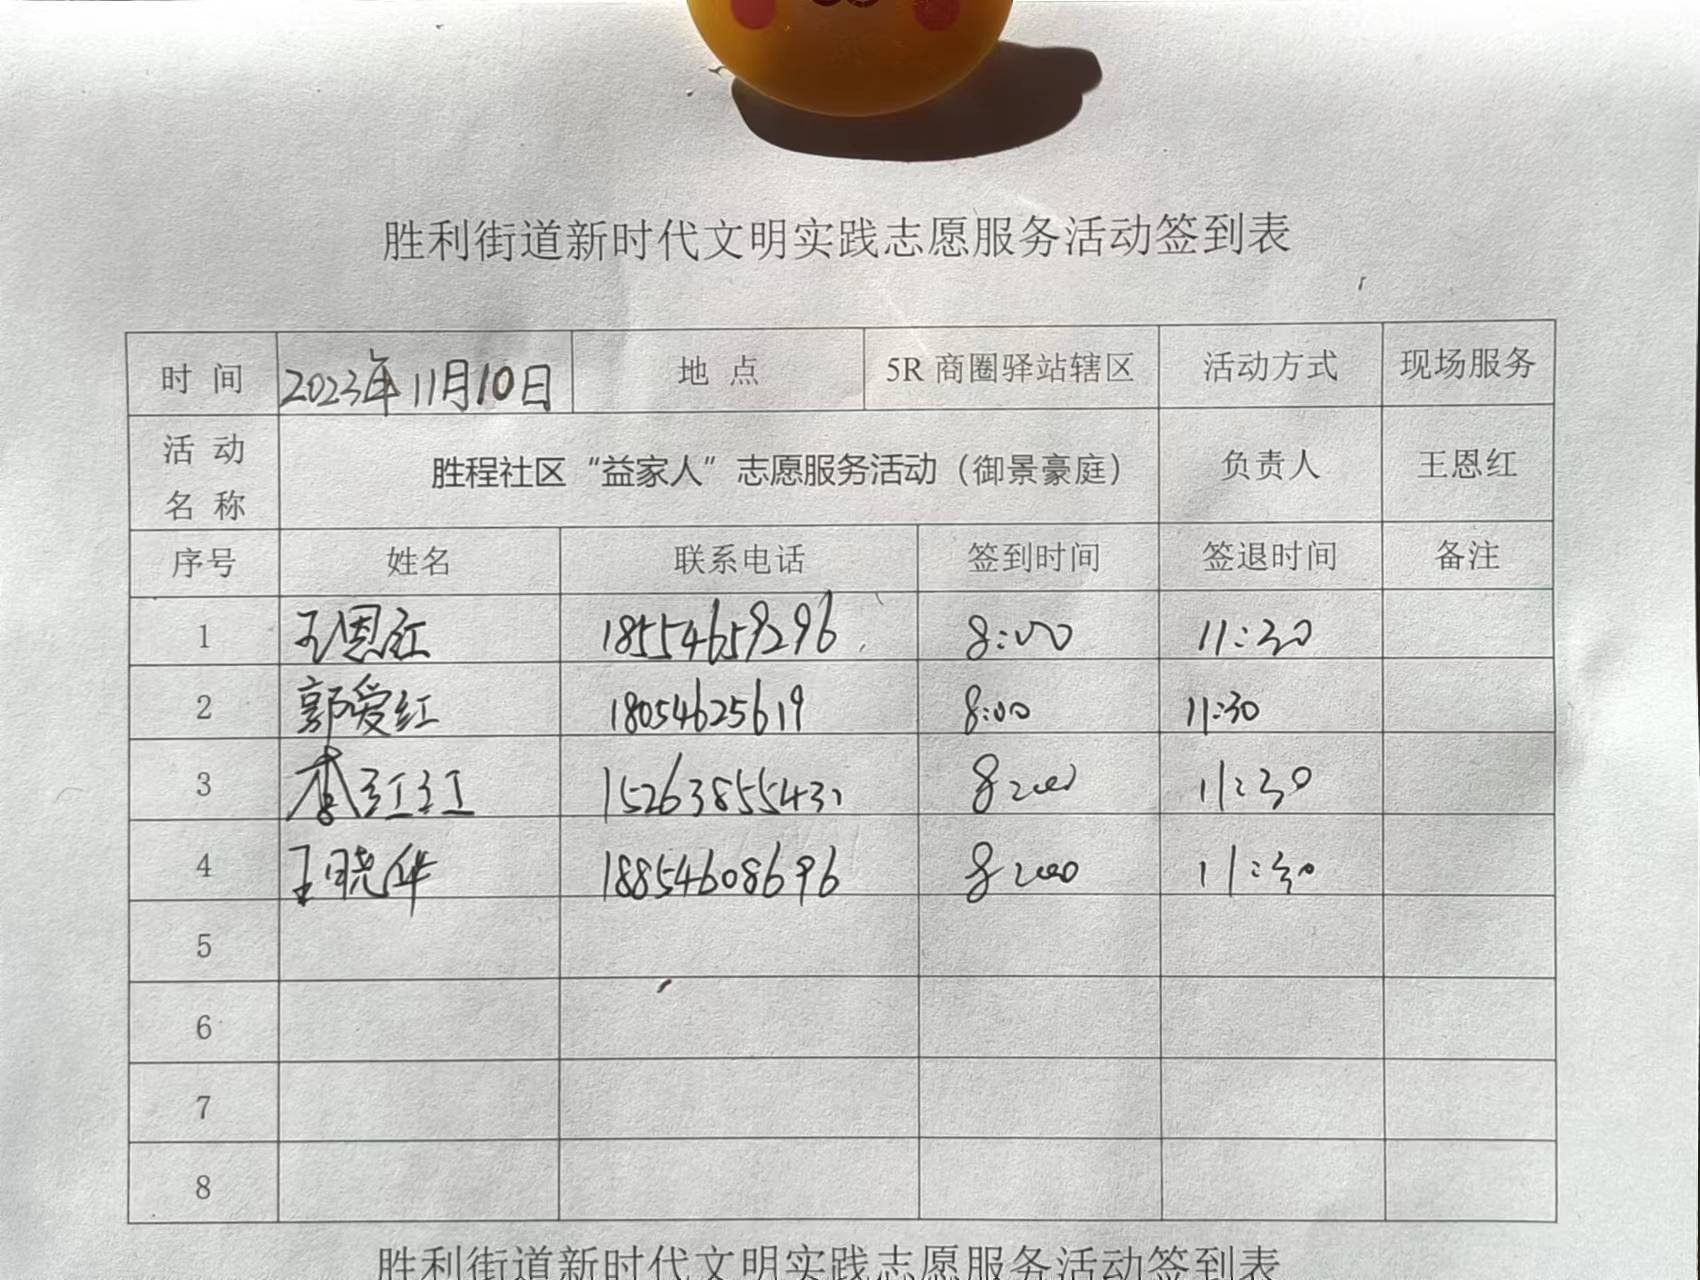 胜利街道新时代文明实践志愿服务活动签到表
时 间 2023年11月10日 地 点 5R 商圈驿站辖区 活动方式 现场服务
活 动 名 称 胜程社区“益家人”志愿服务活动（御景豪庭） 负责人 王恩红
序号 姓名 联系电话 签到时间 签退时间 备注
1 王恩红 18554659296 8:00 11:30
2 郭爱红 18054625619 8:00 11:30
3 李红红 15263855431 8:00 11:30
4 王晓华 18854608696 8:00 11:30
5
6
7
8
胜利街道新时代文明实践志愿服务活动签到表